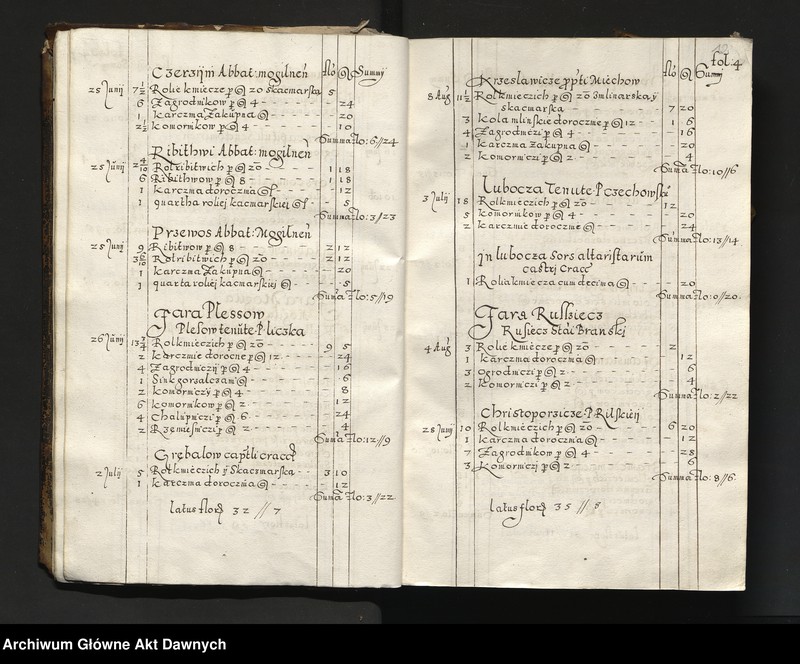 Czerzÿnÿ Abbat: mogilneń flo g Summÿ
25 Junÿ 7 1/2 Rolie kmiecze p g 20 s kacmarską 5
6 Zagrodnikow p g 4 24
1 karczma Zakupna g 20
2 1/2 komornikow p g 4 10
Summa flo: 6//24
Ribithwi Abbat: mogilneń
25 Junÿ Rol ribitwich p g 20 1 18
6 Ribithwow p g 8 1 18
1 karczma doroczna 12
1 quartha roliej kacmarskiej 5
Summa flo: 3/23
Przewos Abbat: Mogilneń
25 Junÿ 9 Ribitwow p g 8 2 12
Rol ribitwich p g 20 2 12
1 karczma Zakupna g 20
1 quarta roliej kacmarskiej g 5
Summa flo: 5//19
Fara Plessow
Plesow tenute P. liczka
26 Junÿ 13 3/4 Rol kmieczich p g 20 9 5
2 karczmie dorocne p g 12 24
4 Zagrodniczÿ p g 4 16
1 6
2 komorniczÿ p g 4 8
6 komornikow p g 2 12
4 Chalupniczi p g 6 24
2 Rzemiesniczi p g 2 4
Summa flo: 12//9
Grębalow captli cracc
2 Julÿ 5 Rol kmieczich ÿ s kacsmarską 3 10
1 karczma doroczna g 12
Summa flo: 3//22
latus flor 32 // 7
fol: 4
Krzeslawicze ppti Miechow flo g Summÿ
8 Aug 11 1/2 Rol kmieczich p g 20 z mlinarską ÿ
s kacmarska 7 20
3 kola mlinskie doroczne p g 12 1 6
4 Zagrodniczi p g 4 16
1 karczma Zakupna g 20
2 komorniczi p g 2 4
Summa flo: 10//6
Lubocza Tenute P. czechowski
3 Julÿ 18 Rol kmieczich p g 20 12
5 komornikow p g 4 20
2 karczmie doroczne g 24
Summa flo: 13//14
In lubocza sors altaristarum
castri cracc
1 Rolia kmiecza cum decima g 20
Summa flo: 0//20
Fara Russiecz
Rusiecz Stac Branski
4 Aug 3 Rolie kmiecze p g 20 2
1 karczma doroczna g 12
3 ogrodniczi p g 2 6
2 komorniczi p g 2 4
Summa flo: 2//22
Christoporzicze P. Rilskiej
28 Junÿ 10 Rol kmieczich p g 20 6 20
1 karczma doroczna g 12
7 Zagrodnikow p g 4 28
3 Komorniczi p g 2 6
Summa flo: 8//6
latus flor 35 // 8
Archiwum Główne Akt Dawnych